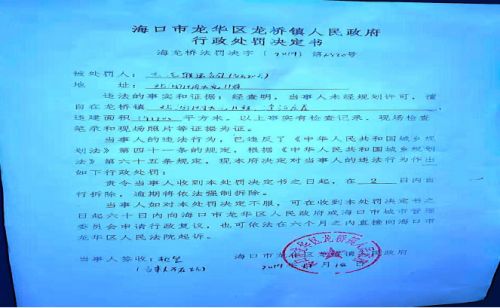 海口市龙华区龙桥镇人民政府
行政处罚决定书
海龙桥法罚决字（2019）第 号
被处罚人：
地 址：
违法的事实和证据：经查明，当事人未经规划许可，擅
自在龙桥镇
违建面积 平方米。以上事实有检查记录、现场检查
笔录和现场照片等证据为证。
当事人的违法行为，已违反了《中华人民共和国城乡规
划法》第四十一条的规定，根据《中华人民共和国城乡规划
法》第六十五条规定，现本府决定对当事人的违法行为作出
如下行政处罚：
责令当事人收到本处罚决定书之日起，在 2 日内自
行拆除，逾期将依法强制拆除。
当事人如对本处罚决定不服，可在收到本处罚决定书之
日起六十日内向海口市龙华区人民政府或海口市城市管理
委员会申请行政复议，也可依法在六个月之内直接向海口市
龙华区人民法院起诉。
当事人签收： 海口市龙华区龙桥镇人民政府
2019年 月 日